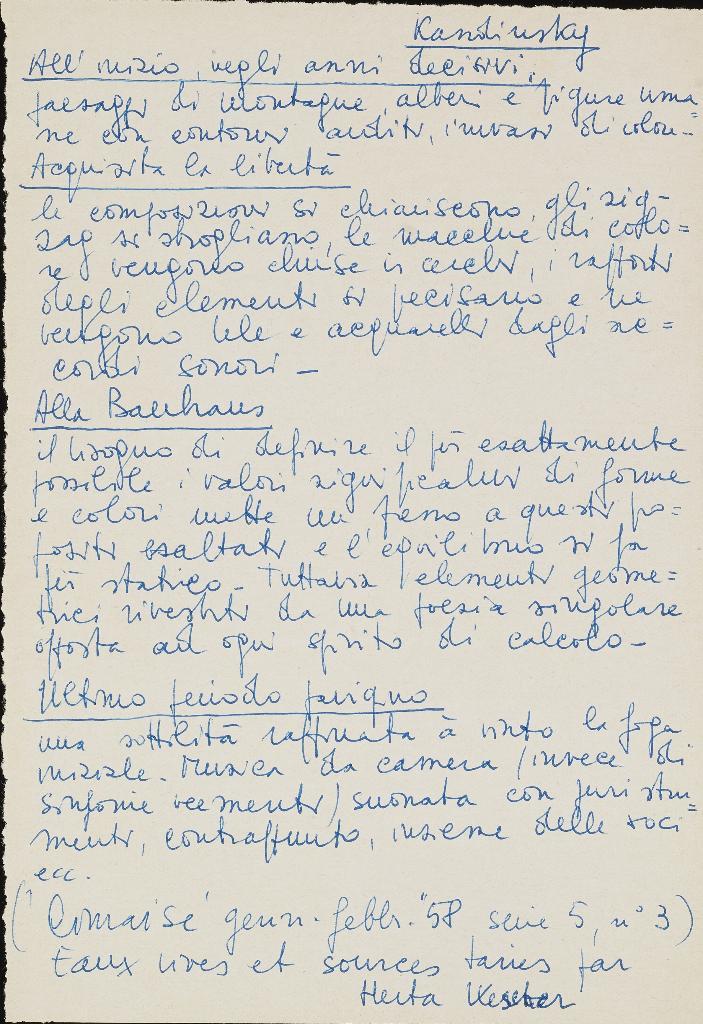 Kandinsky
All' inizio, negli anni decisivi,
paesaggi di montagne, alberi e figure uma=
ne con contorni arditi, invasi di colori=
Acquisita la libertà
le composizioni si chiariscono, gli zig-
zag si sbrogliano, le macchie di colo=
re vengono chiuse in cerchi, i rapporti
degli elementi si precisano e ne
vengono tele e acquarelli dagli ac=
cordi sonori –
Alla Bauhaus
il bisogno di definire il più esattamente
possibile i valori significativi di forme
e colori mette un freno a questi pro=
positi esaltati e l'equilibrio si fa
più statico – Tuttavia elementi geome=
trici rivestiti da una poesia singolare
opposta ad ogni spirito di calcolo –
Ultimo periodo parigino
una sottilità raffinata à vinto la foga
iniziale. Musica da camera (invece di
sinfonie veementi) suonata con puri stru=
menti, contrappunto, insieme delle voci
ecc.
( genn. febbr. '58, serie 5, n° 3)
Eaux vives et sources taries par
Herta